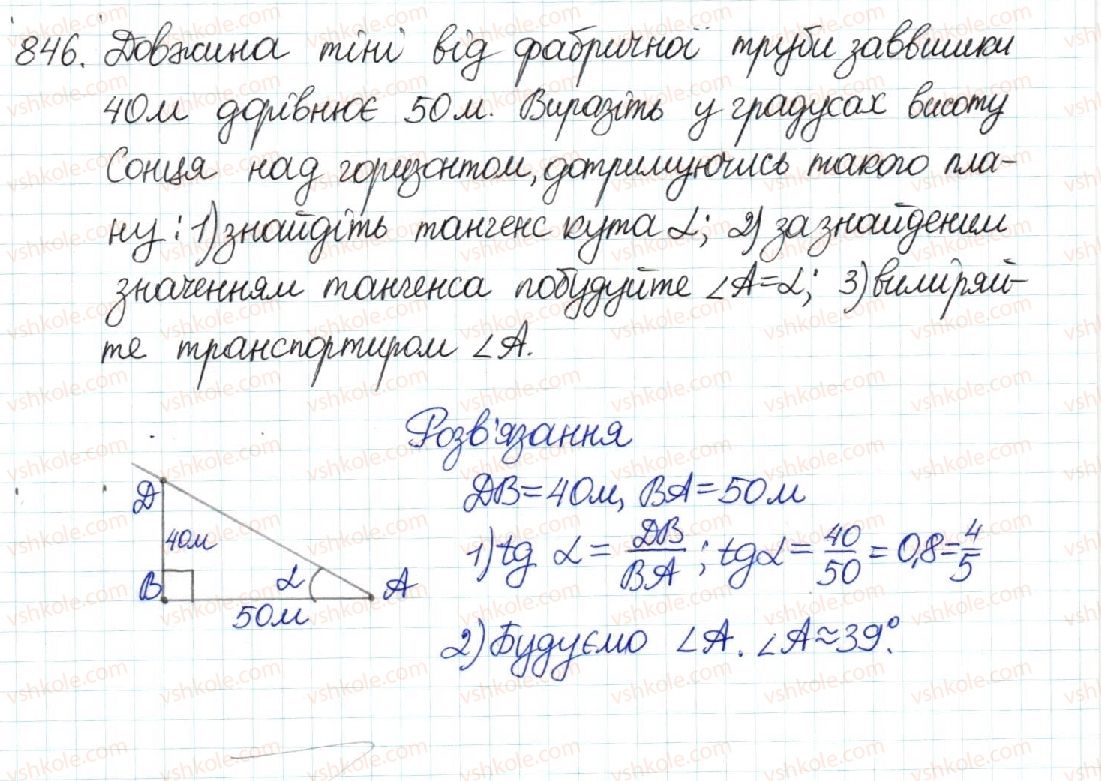 846. Довжина тіні від фабричної труби заввишки
40м дорівнює 50м. Виразіть у градусах висоту
Сонця над горизонтом, дотримуючись такого пла-
ну: 1) знайдіть тангенс кута α; 2) за знайденим
значенням тангенса побудуйте ∠A=α; 3) виміряй-
те транспортиром ∠A.
Розв'язання
DB=40м, BA=50м
1) tg α = DB/BA; tgα = 40/50 = 0,8 = 4/5
2) Будуємо ∠A. ∠A≈39°.
D
40м
B
α
A
50м
vshkole.com